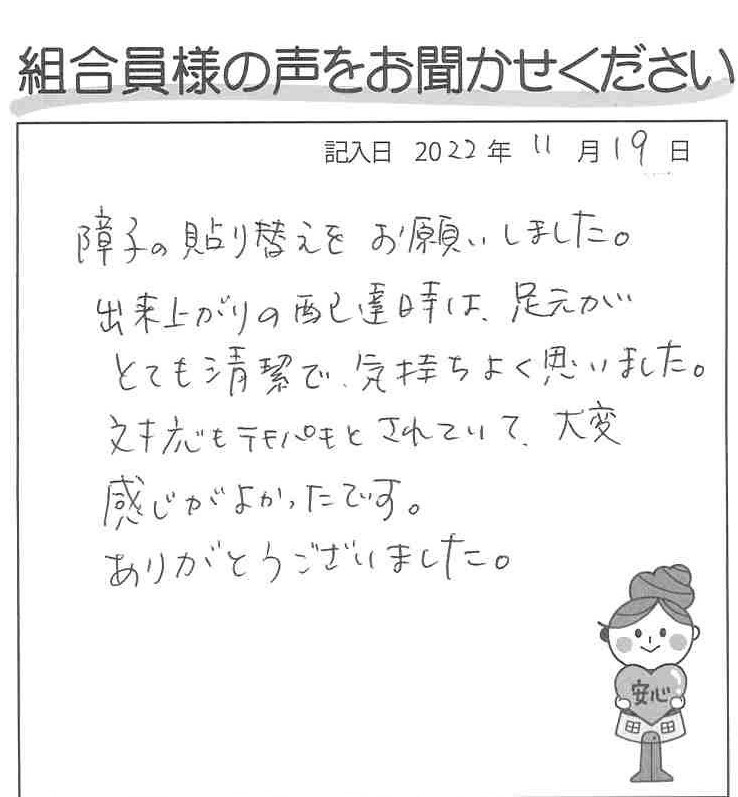 組合員様の声をお聞かせください
記入日 2022年 11月19日
障子の貼り替えを お願いしました。
出来上がりの配達時は、足元が
とても清潔で、気持ちよく思いました。
対応もテキパキとされていて、大変
感じがよかったです。
ありがとうございました。
安心